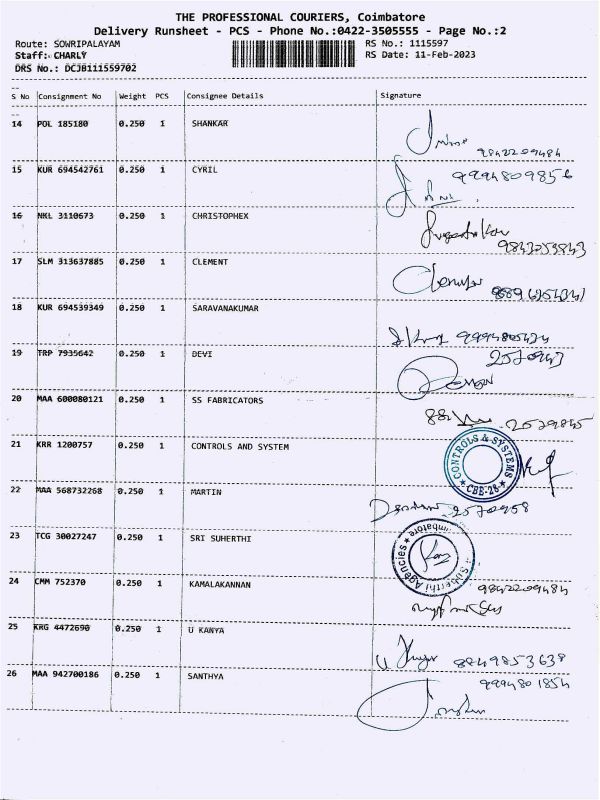 THE PROFESSIONAL COURIERS, Coimbatore
Delivery Runsheet - PCS - Phone No.:0422-3505555 - Page No.:2
Route: SOWRIPALAYAM RS No.: 1115597
Staff: CHARLY RS Date: 11-Feb-2023
DRS No.: DCJB111559702
S No Consignment No Weight PCS Consignee Details Signature
14 POL 185180 0.250 1 SHANKAR
9842209484
15 KUR 694542761 0.250 1 CYRIL
9994809856
16 NKL 3110673 0.250 1 CHRISTOPHEX
9843253843
17 SLM 313637885 0.250 1 CLEMENT
18 KUR 694539349 0.250 1 SARAVANAKUMAR
19 TRP 7935642 0.250 1 DEVI
2570943
20 MAA 600080121 0.250 1 SS FABRICATORS
2529845
21 KRR 1200757 0.250 1 CONTROLS AND SYSTEM
CONTROLS & SYSTEMS
CBE-28
22 MAA 568732268 0.250 1 MARTIN
2570958
23 TCG 30027247 0.250 1 SRI SUHERTHI
Agencies
24 CMM 752370 0.250 1 KAMALAKANNAN
9842209484
25 KRG 4472690 0.250 1 U KANYA
8849853638
26 MAA 942700186 0.250 1 SANTHYA
9994801854